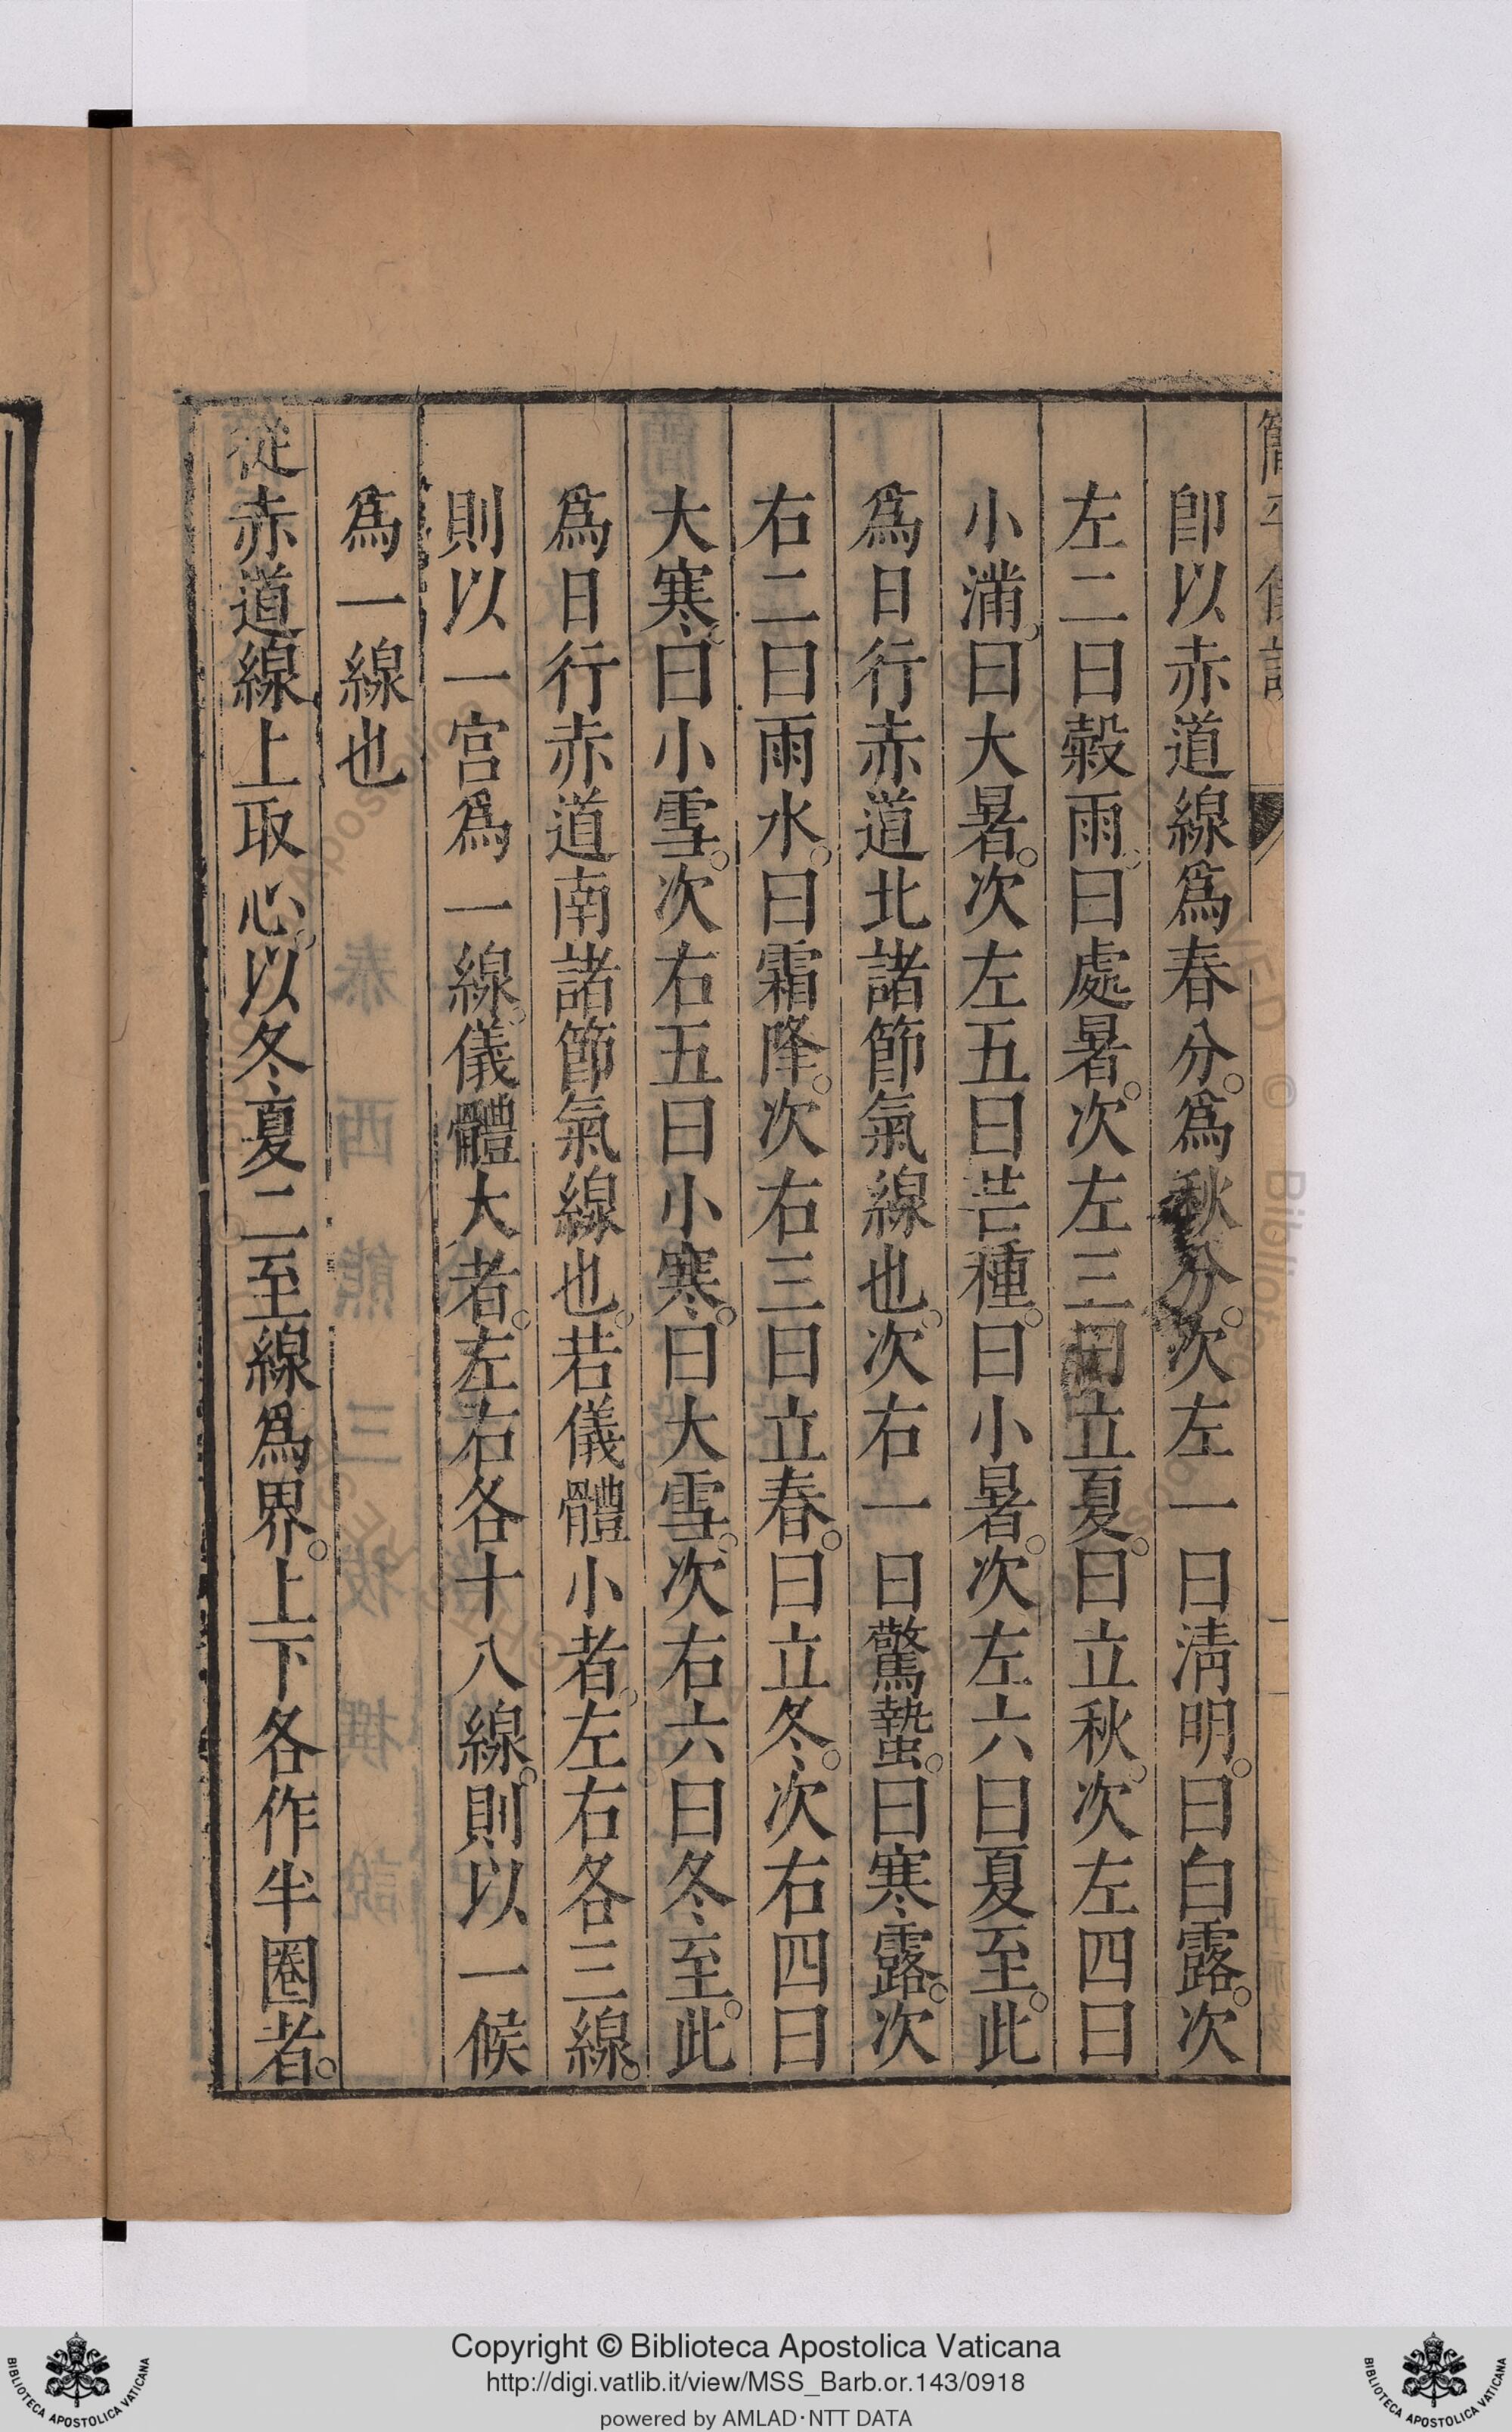 卽以赤道線爲春分。爲秋分。次左一曰淸明。曰白露。次
左二曰穀雨。曰處暑。次左三曰立夏。曰立秋。次左四曰
小滿。曰大暑。次左五曰芒種。曰小暑。次左六曰夏至。此
爲日行赤道北諸節氣線也。次右一曰驚蟄。曰寒露。次
右二曰雨水。曰霜降。次右三曰立春。曰立冬。次右四曰
大寒。曰小雪。次右五曰小寒。曰大雪。次右六曰冬至。此
爲日行赤道南諸節氣線也。若儀體小者。左右各三線。
則以一宮爲一線。儀體大者。左右各十八線。則以一候
爲一線也
從赤道線上取心。以冬夏二至線爲界。上下各作半圈者。
Copyright © Biblioteca Apostolica Vaticana
http://digi.vatlib.it/view/MSS_Barb.or.143/0918
powered by AMLAD·NTT DATA
BIBLIOTECA APOSTOLICA VATICANA
BIBLIOTECA APOSTOLICA VATICANA